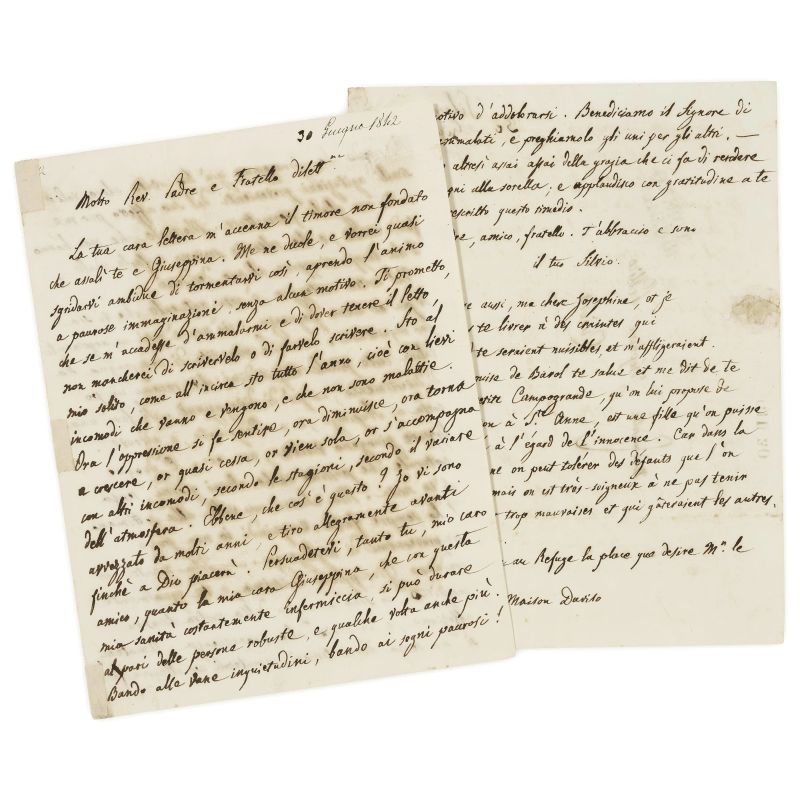 30 Giugno 1842
Molto Rev. Padre e Fratello dilett.mo
La tua cara lettera m'accenna il timore non fondato
che assalì te e Giuseppina. Me ne duole, e vorrei quasi
sgridarvi ambidue di tormentarvi così, aprendo l'animo
a paurose immaginazioni senza alcun motivo. Ti prometto,
che se m'accadesse d'ammalarmi e di dover tenere il letto,
non mancherei di scrivervelo o di farvelo scrivere. Sto al
mio solito, come all'incirca sto tutto l'anno, cioè con lievi
incomodi che vanno e vengono, e che non sono malattie.
Ora l'oppressione si fa sentire, ora diminuisce, ora torna
a crescere, or quasi cessa, or vien sola, or s'accompagna
con altri incomodi, secondo le stagioni, secondo il variare
dell'atmosfera. Ebbene, che cos'è questo? Io vi sono
avvezzato da molti anni, e tiro allegramente avanti
finchè a Dio piacerà. Persuadetevi, tanto tu, mio caro
amico, quanto la mia cara Giuseppina, che con questa
mia sanità costantemente infermiccia, si può durare
al pari delle persone robuste, e qualche volta anche più.
Bando alle vane inquietudini, bando ai sogni paurosi!
motivo d'addolorarsi. Benediciamo il Signore di
ammalati, e preghiamolo gli uni per gli altri. —
altresì assai assai della grazia che ci fa di rendere
alla sorella; e applaudisco con gratitudine a te
prescritto questo rimedio.
amico, fratello. T'abbraccio e sono
il tuo Silvio.
aussi, ma chere Josephine, et je
te livrer à des craintes qui
te seraient nuisibles et m'affligeraient.
de Barol te salue et me dit de te
Campogrande, qu'on lui propose de
à St. Anne, est une fille qu'on puisse
à l'égard de l'innocence. Car dans la
on peut tolérer des défauts que l'on
mais on est très-soigneux à ne pas tenir
trop mauvaises et qui gâteraient les autres.
au Refuge la place que desire Mr. le
Maison Daviso